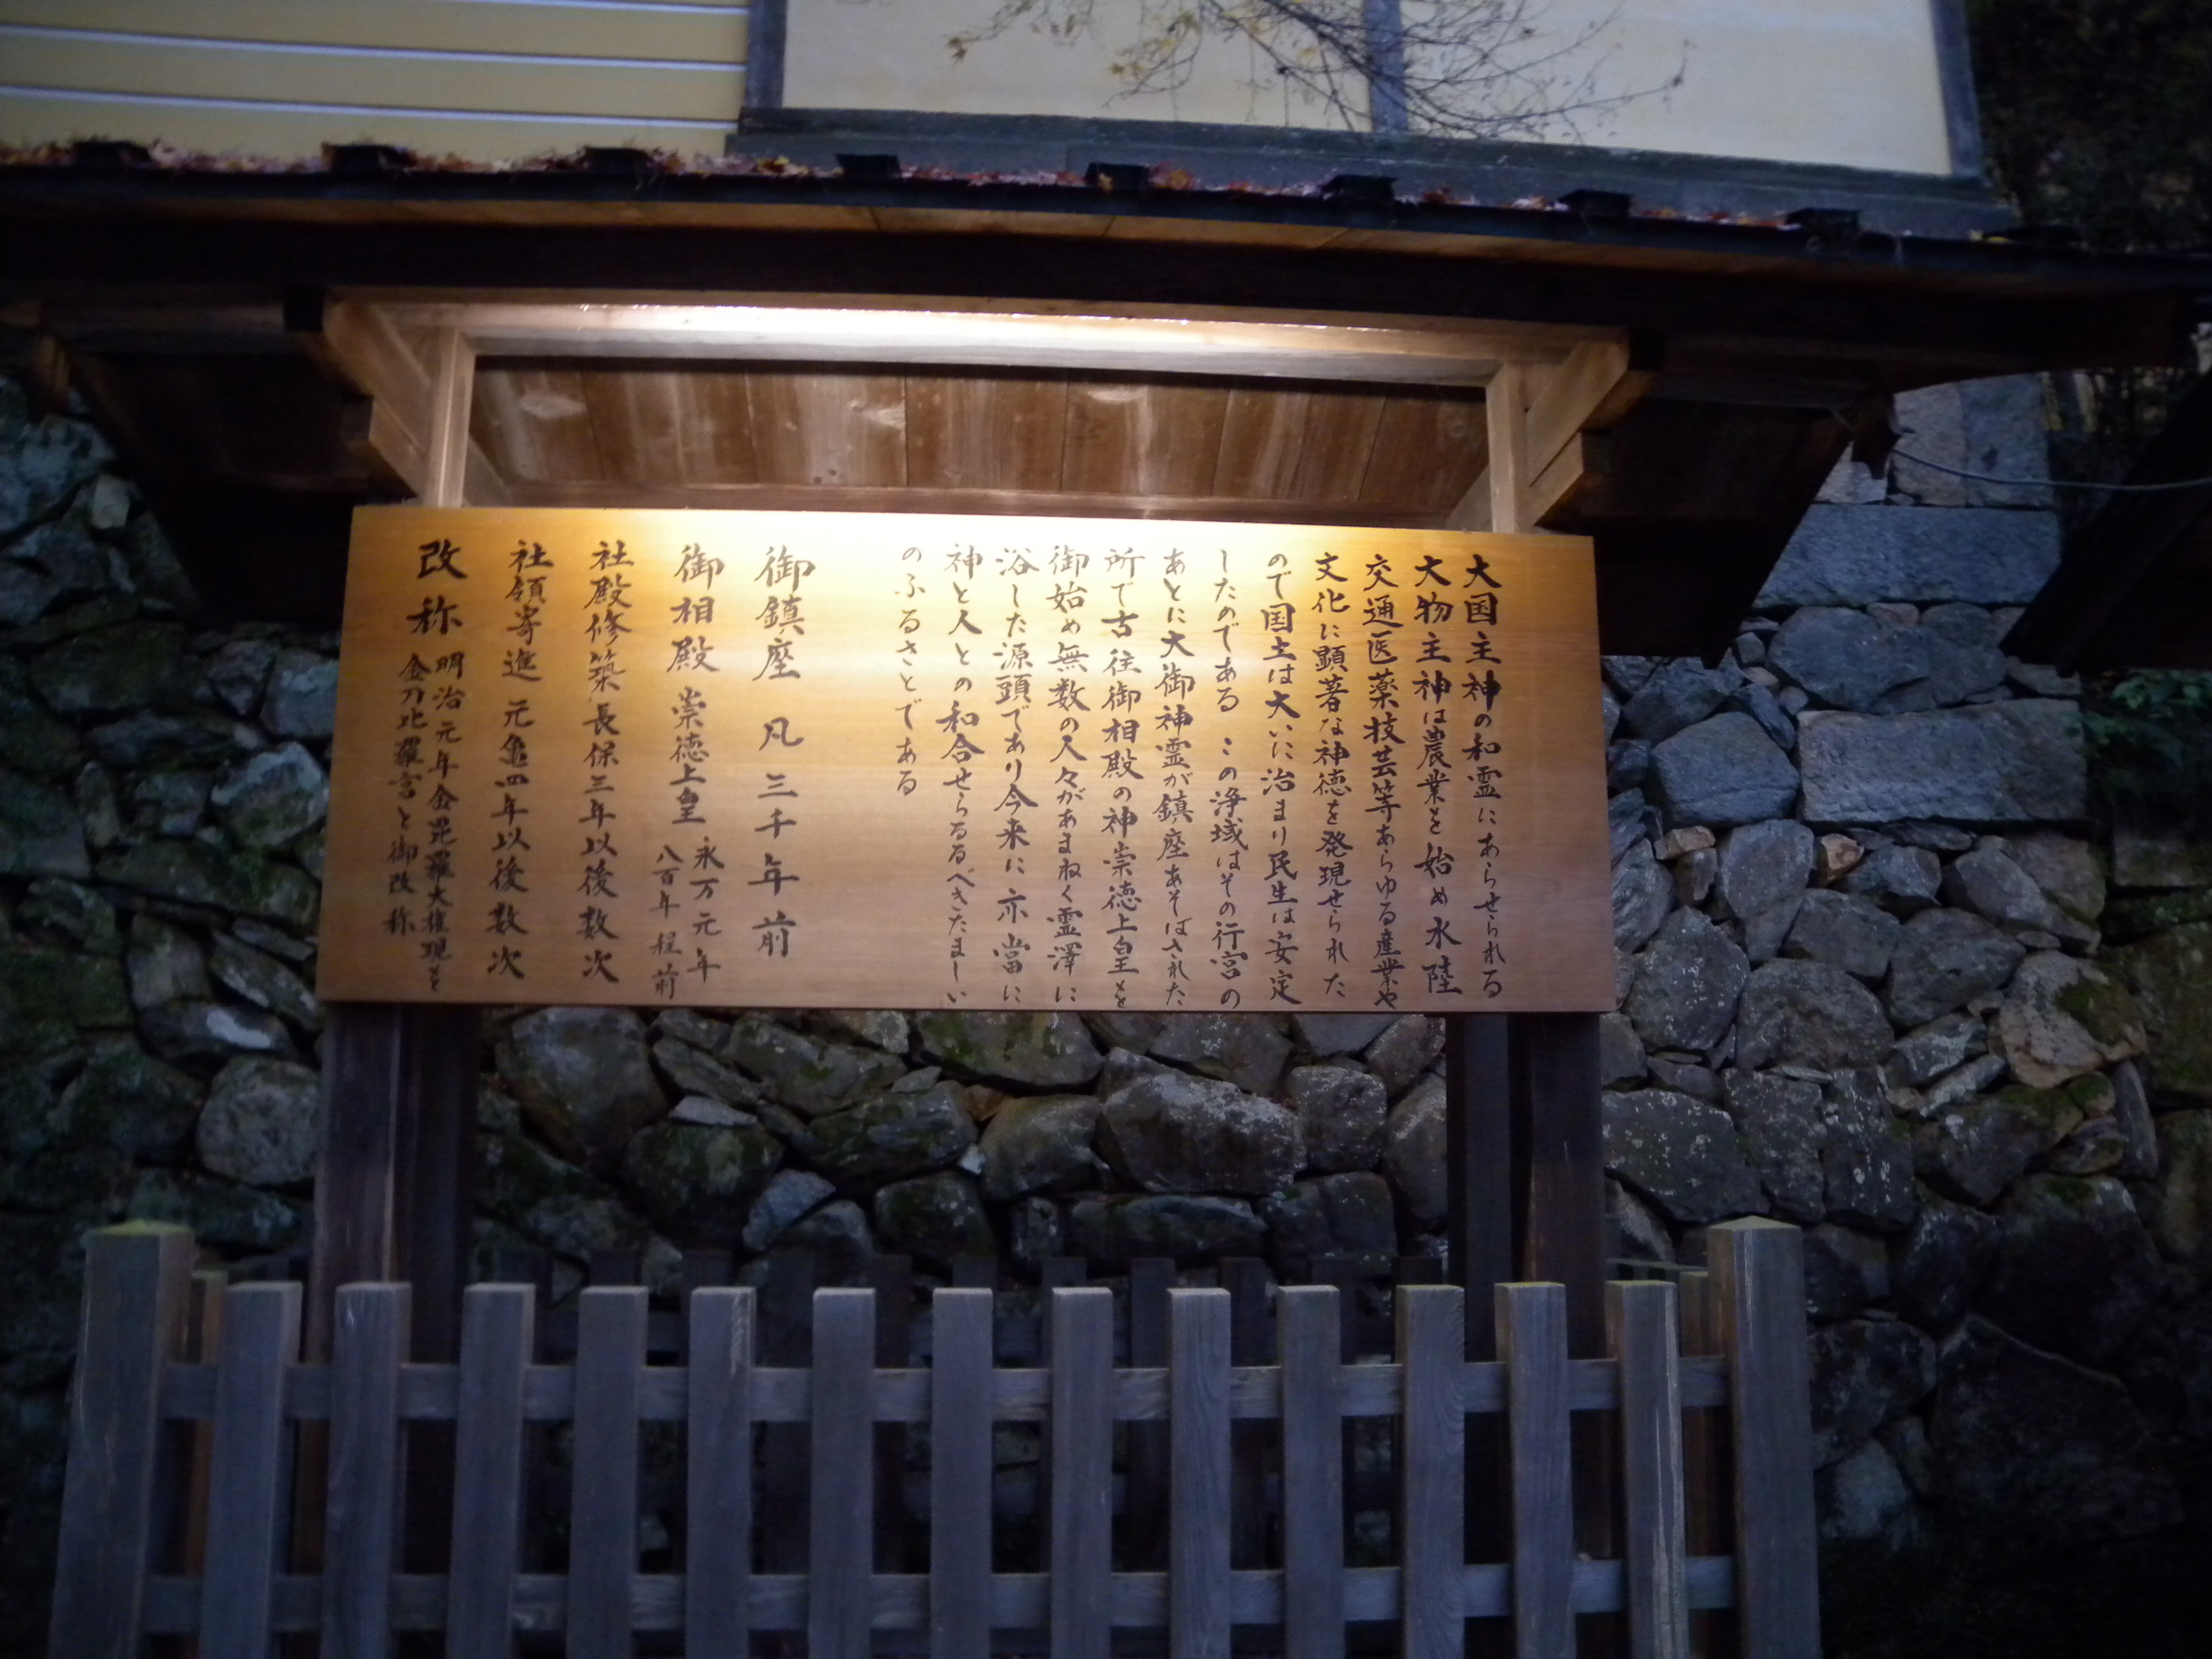 大国主神の和霊にあらせられる
大物主神は農業を始め水陸
交通医薬技芸等あらゆる産業や
文化に顕著な神徳を発現せられた
ので国土は大いに治まり民生は安定
したのである この浄域はその行宮の
あとに大御神霊が鎮座あそばされた
所で古往御相殿の神崇徳上皇を
御始め無数の人々があまねく霊澤に
浴した源頭であり今来に亦當に
神と人との和合せらるるべきたましい
のふるさとである
御鎮座 凡三千年前
御相殿 崇徳上皇 永万元年
八百年程前
社殿修築 長保三年以後数次
社領寄進 元亀四年以後数次
改称 明治元年金毘羅大権現を
金刀比羅宮と御改称